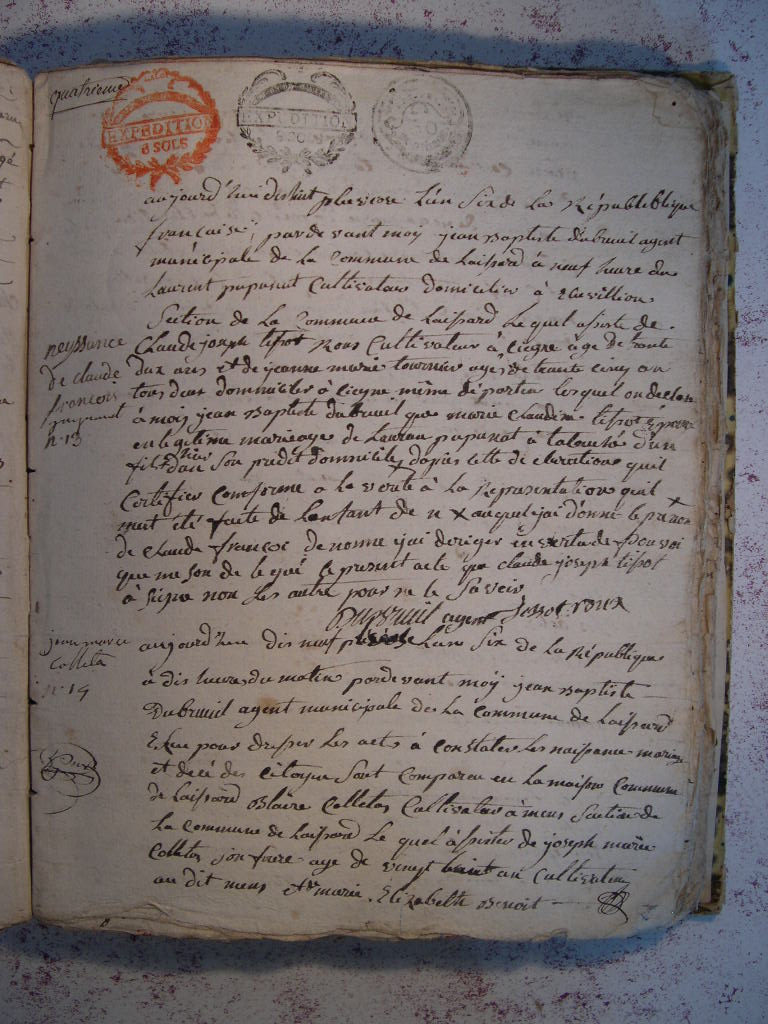 quatrieme
EXPEDITION
6 SOLS
EXPEDITION
6 SOLS
aujourd'huÿ dishuit pluviose l'an Six de la Républeblique
francaise, par devant moÿ jean Baptiste Dubreuil agent
municipale de la Commune de Laissard à neuf heure du
Laurent pupunat Cultivateur domicilier à
Section de la Commune de Laissard le quel asisté de
Claude joseph tissot Roux Cultivateur à âge de trante
dux ans et de jeanne marie tournier agés de trante cinq an
tous deux dommicilier à même départem lesquel on declare
à moÿ jean Baptiste dubreuil que marie Claudine tissot Epouse
en legitime mariage de Laurau pupunat à d'un
fils dans son predit domicile, dapres cette declaration quil
Certifier Conforme a la verité à la Representation quil
mait été faite de Lenfant de n x auquel jai donné le prenon
de Claude françoi de nomme jai deriger en vertu de pouvoi
que me son de le gué le present acte que claude joseph tissot
à signe non les autre pour ne le savoir
Dubreuil agent tissot roux
neyssance
de claude
françois
pupunat
n. 13
jean marie
Colleta
n. 14
aujourd'hui dis neuf pluviose l'an Six de la République
à dis heures du matin pardevant moÿ jean Baptiste
Dubreuil agent municipale de la Commune de Laissard
Elue pour dresser les acts à constater les naissance mariage
et décé des Citoyen sont comparu en la maison Commune
de Laissard Blaise Colletas Cultivateur à mens Section de
la Commune de Laissard le quel assistés de joseph marie
Colletas son frere age de vingt huit an Cultivateur
au dit mens et de marie Elizabelth Benoit